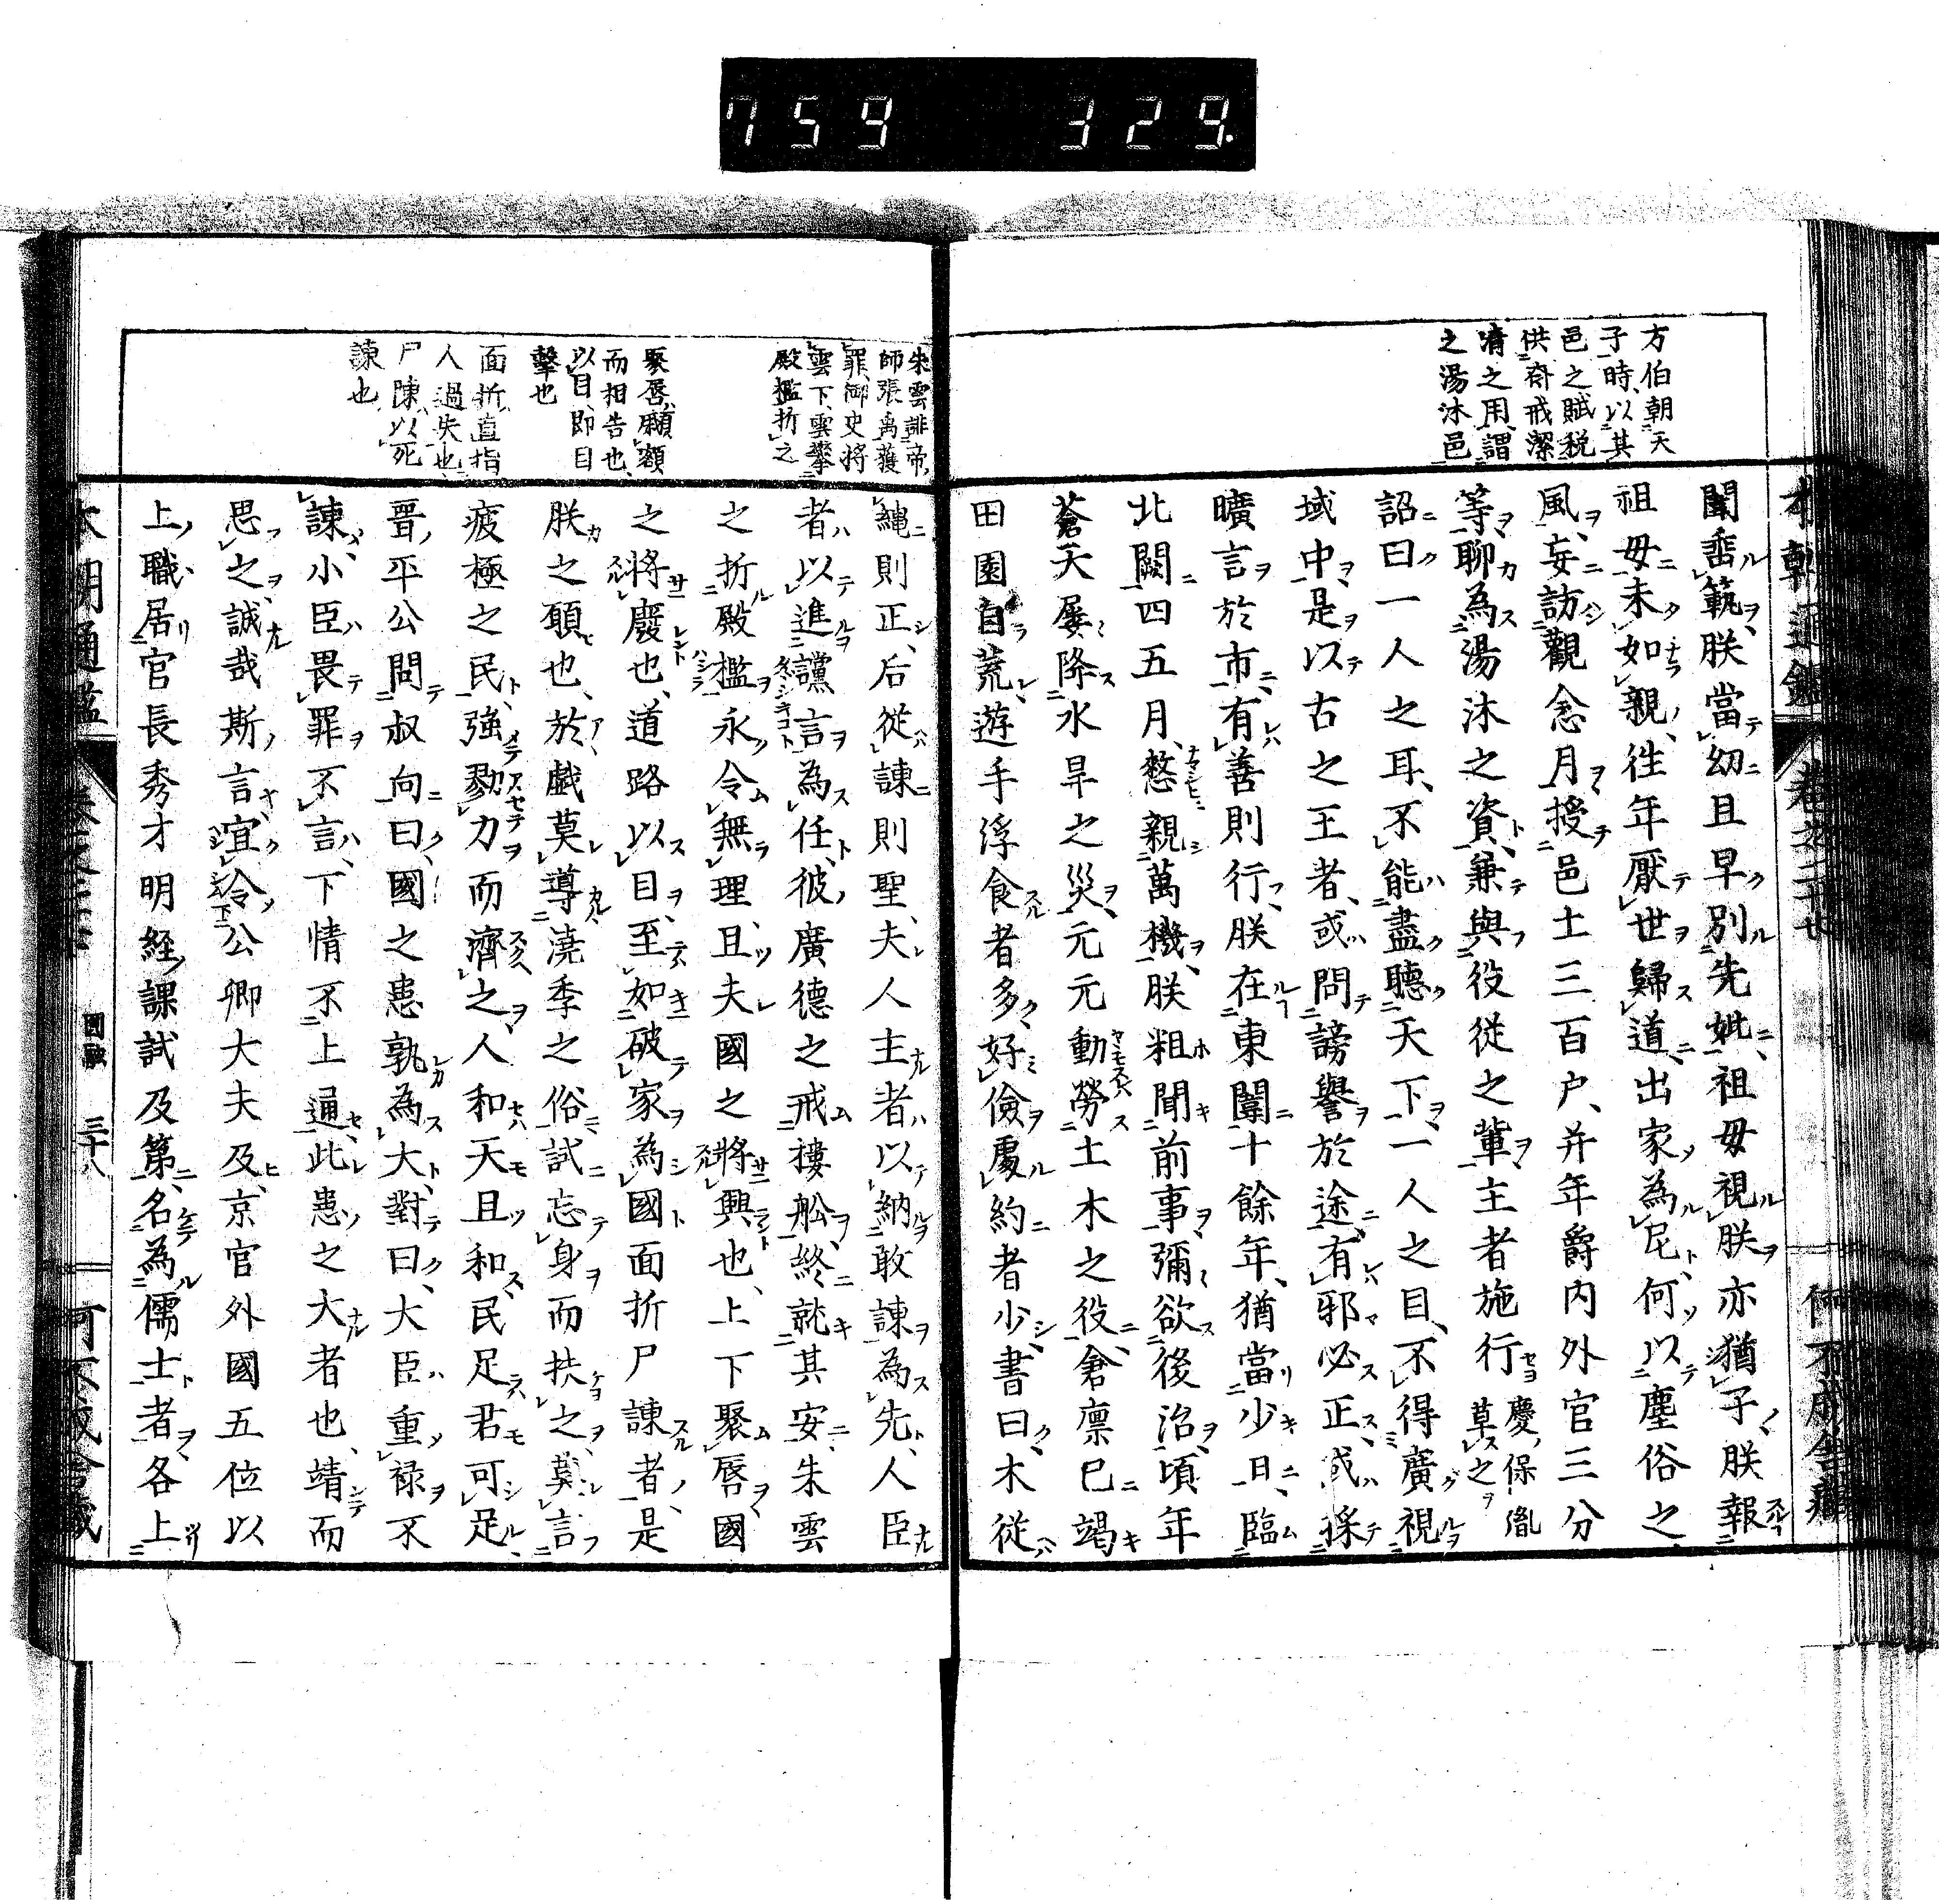 759 329.
方伯朝天
子時以其
邑之賦税
供斎戒潔
清之用謂
之湯沐邑
聞垂範朕當幼且早別先妣祖母視朕亦猶子朕報
祖母未如親徃年厭世歸道出家為尼何以塵俗之
風妄訪觀念月授邑土三百户并年爵内外官三分
等聊為湯沐之資兼與役従之輩主者施行 慶保胤草之
詔曰一人之耳不能盡聽天下一人之目不得廣視
域中是以古之王者或問謗譽於途有邪必正或採
曠言於市有善則行朕在東闈十餘年猶當少日臨
北闕四五月憖親萬機朕粗聞前事彌欲後治頃年
蒼天屡降水旱之災元元動勞土木之役倉廩已竭
田園自荒遊手浮食者多好儉處約者少書曰木従
朱雲誹帝
師張禹獲
罪御史將
雲下雲攀
殿檻折之
聚唇願額
而相告也
以目即目
擊也
面折直指
人過失也
尸陳以死
諌也
繩則正后従諌則聖夫人主者以納敢諌為先人臣
者以進讜言為任彼廣德之戒樓舩終就其安朱雲
之折殿檻永令無理且夫國之將興也上下聚唇國
之將廢也道路以目至如破家為國面折尸諌者是
朕之願也於戲莫導澆季之俗試忘身而扶之莫言
疲極之民強勠力而濟之人和天且和民足君可足
晋平公問叔向曰國之患孰為大對曰大臣重禄不
諌小臣畏罪不言下情不上通此患之大者也靖而
思之誠哉斯言宜令公卿大夫及京官外國五位以
上職居官長秀才明経課試及第名為儒士者各上
國融 三十八